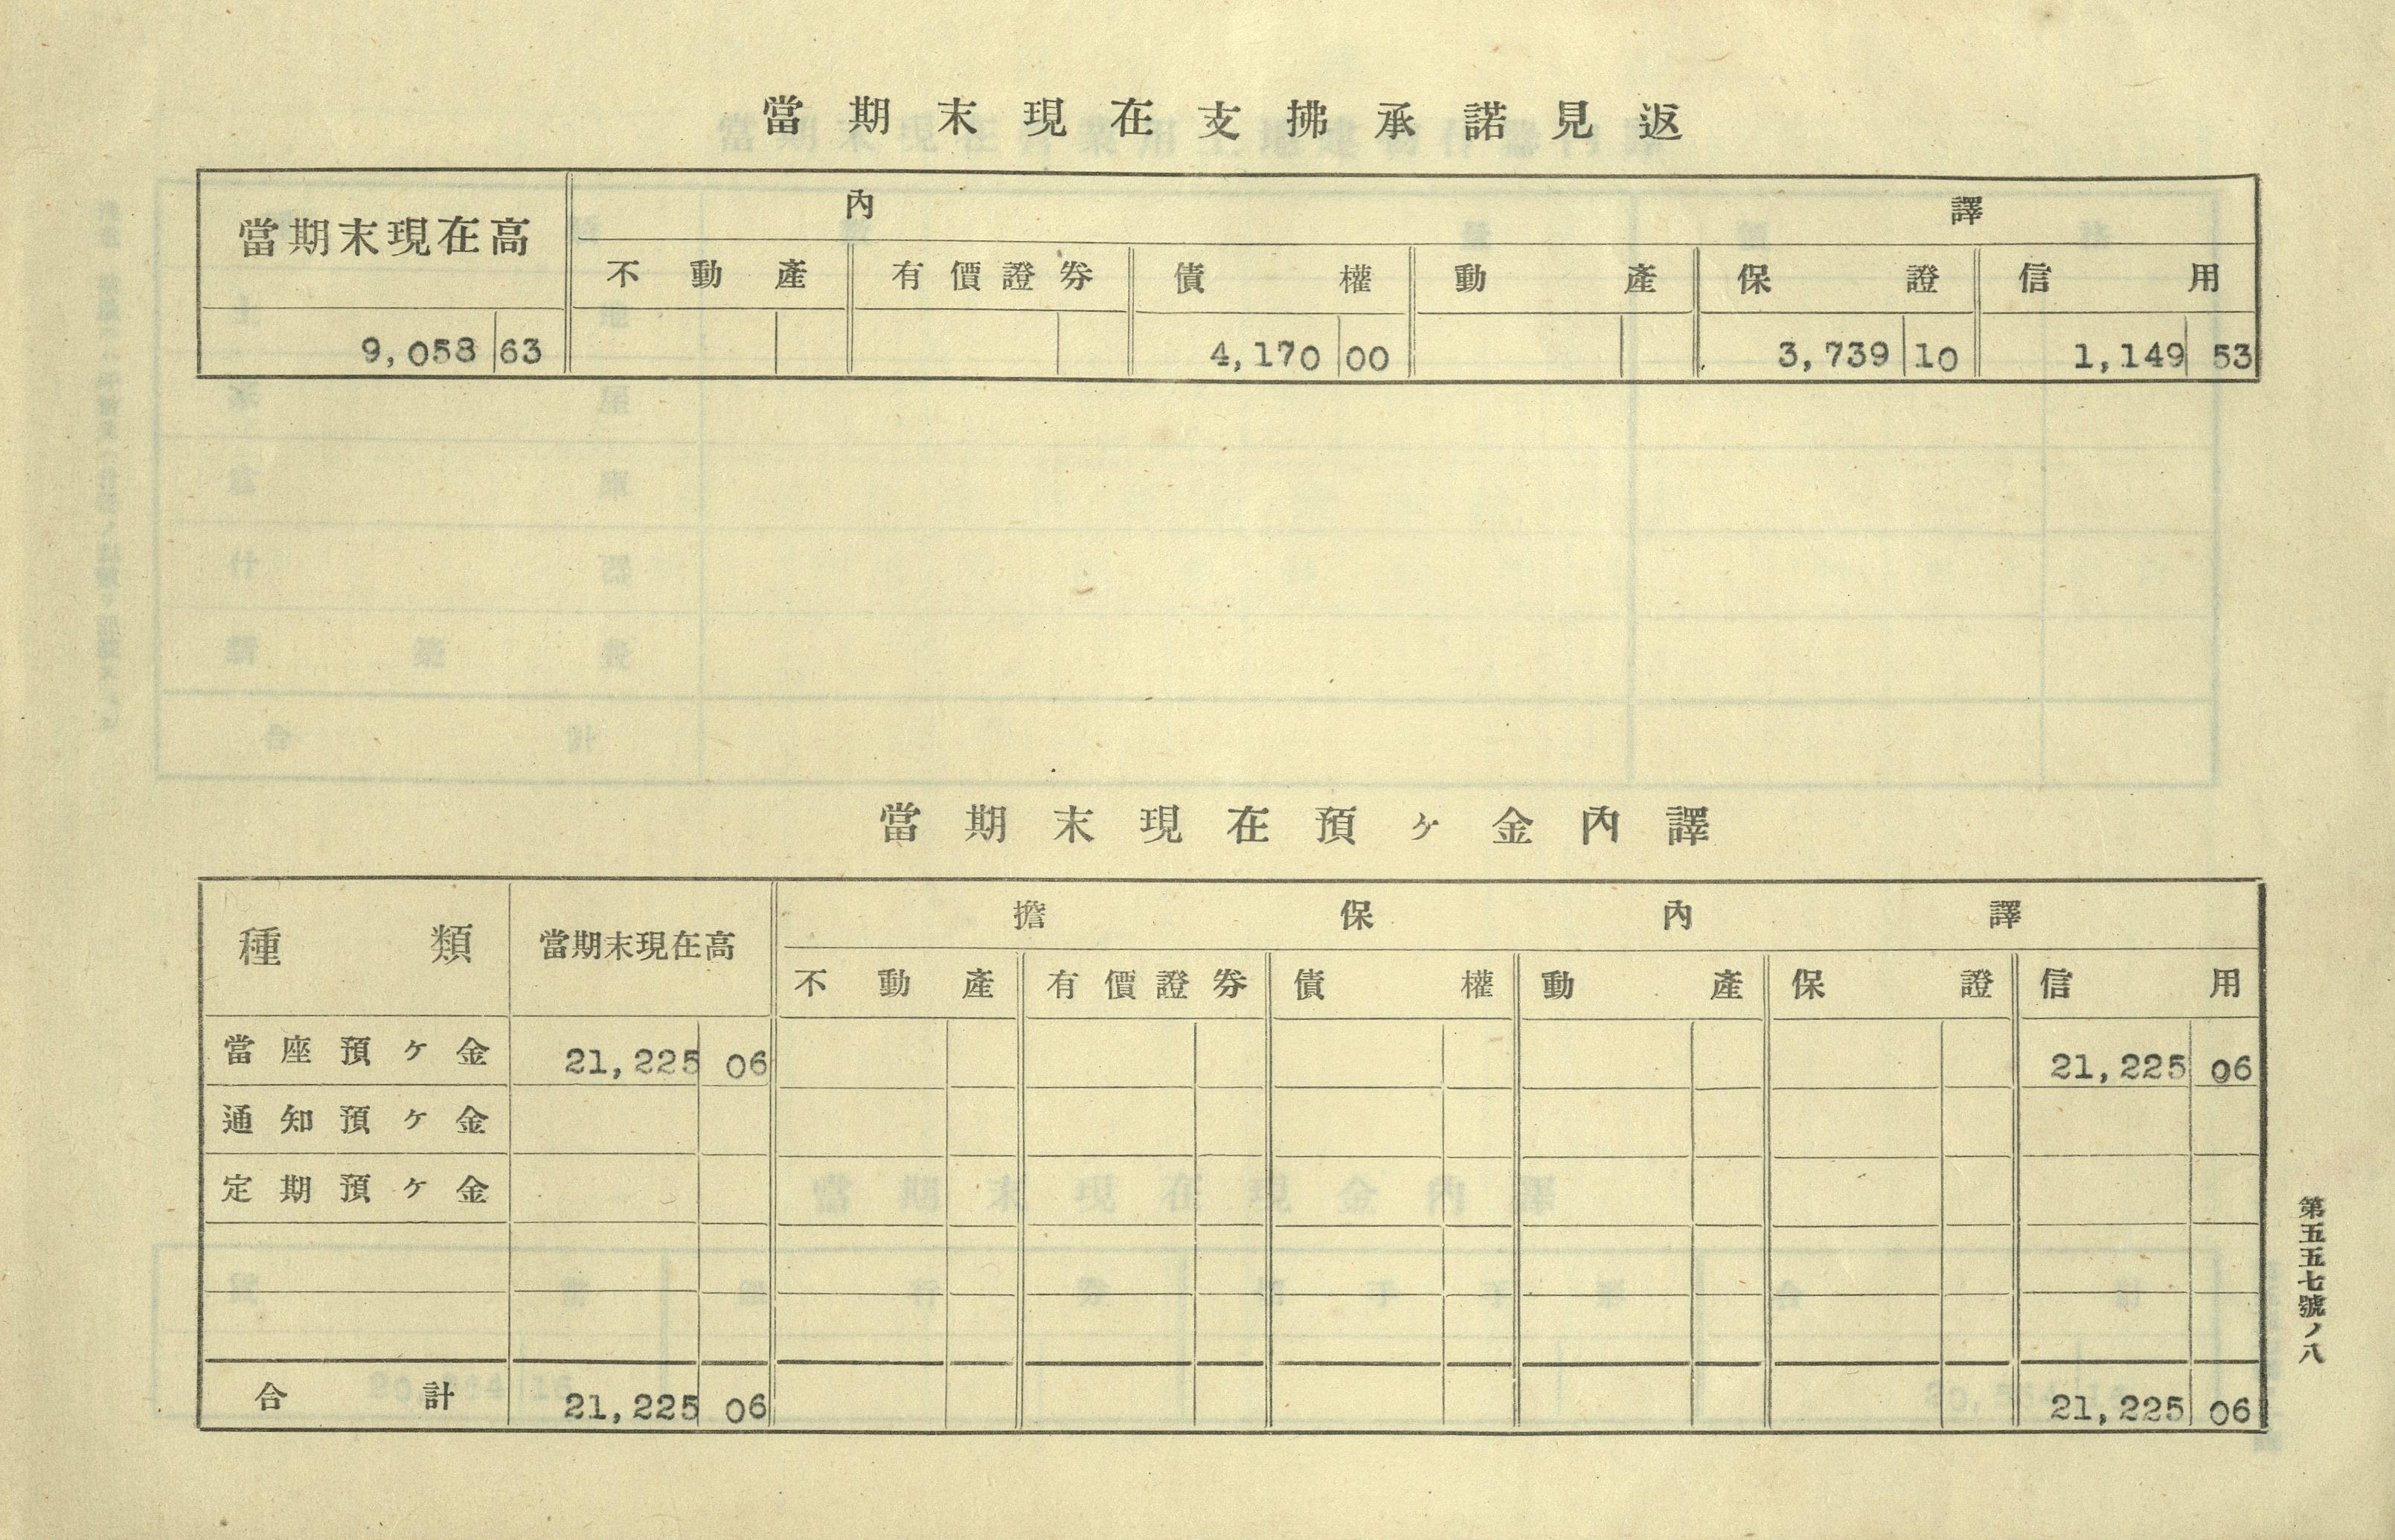 當期末現在支拂承諾見返
當期末現在高 內譯
不動產 有價證券 債權 動產 保證 信用
9,058 63 4,170 00 3,739 10 1,149 53
當期末現在預ヶ金內譯
種類 當期末現在高 擔保內譯
不動產 有價證券 債權 動產 保證 信用
當座預ヶ金 21,225 06 21,225 06
通知預ヶ金
定期預ヶ金
合計 21,225 06 21,225 06
第五五七號ノ八